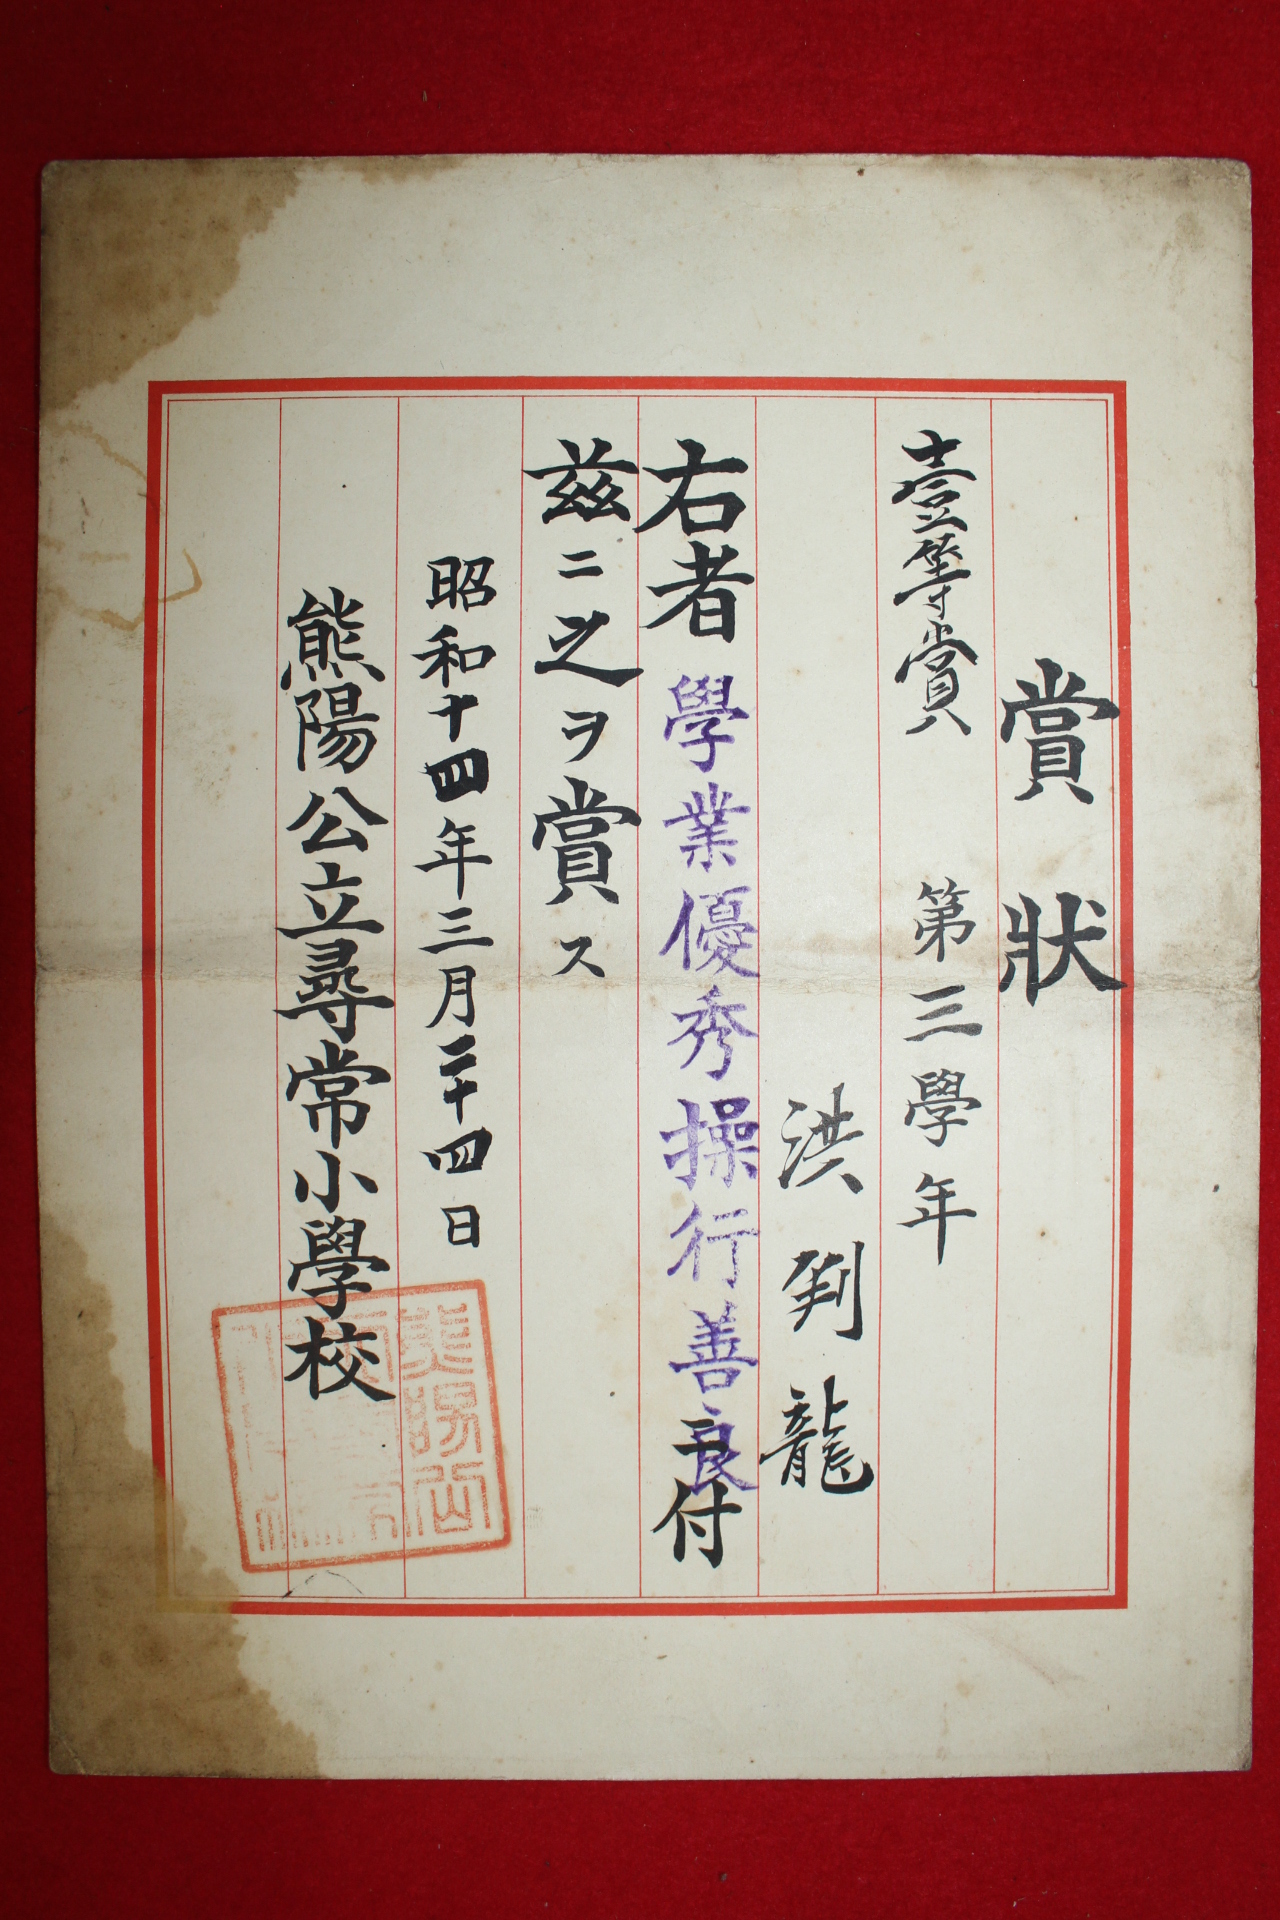 賞狀
壹等賞 第三學年
洪 龍
右者學業優秀操行善良ニ付
茲ニ之ヲ賞ス
昭和十四年三月二十四日
熊陽公立尋常小學校